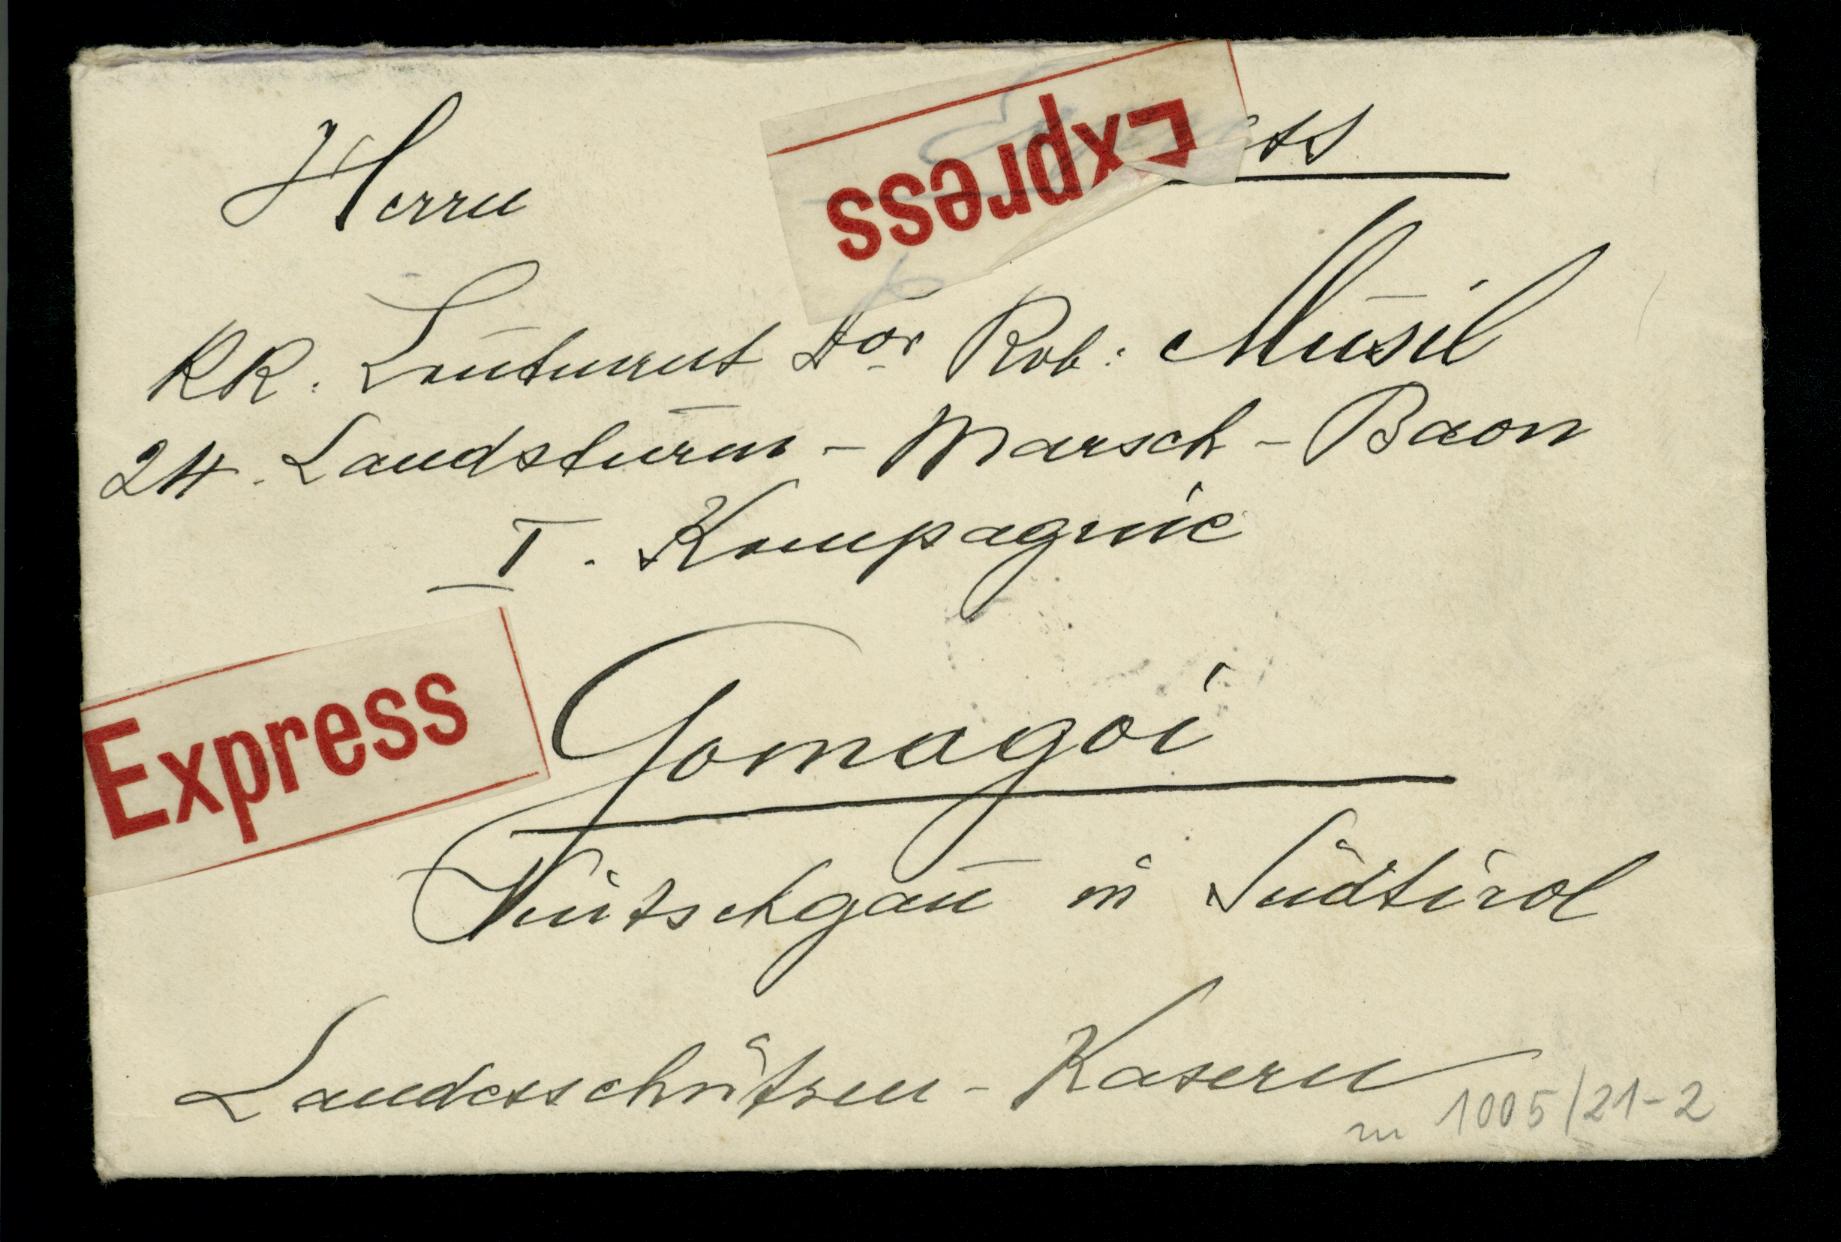 Herrn
Express
Express
KK. Leutnant Dor Rob: Musil
24. Landsturm - Marsch - Baon
I. Kompagnie
Express
Gomagoi
Vintschgau in Südtirol
Landesschützen - Kasern
zu 1005/21-2